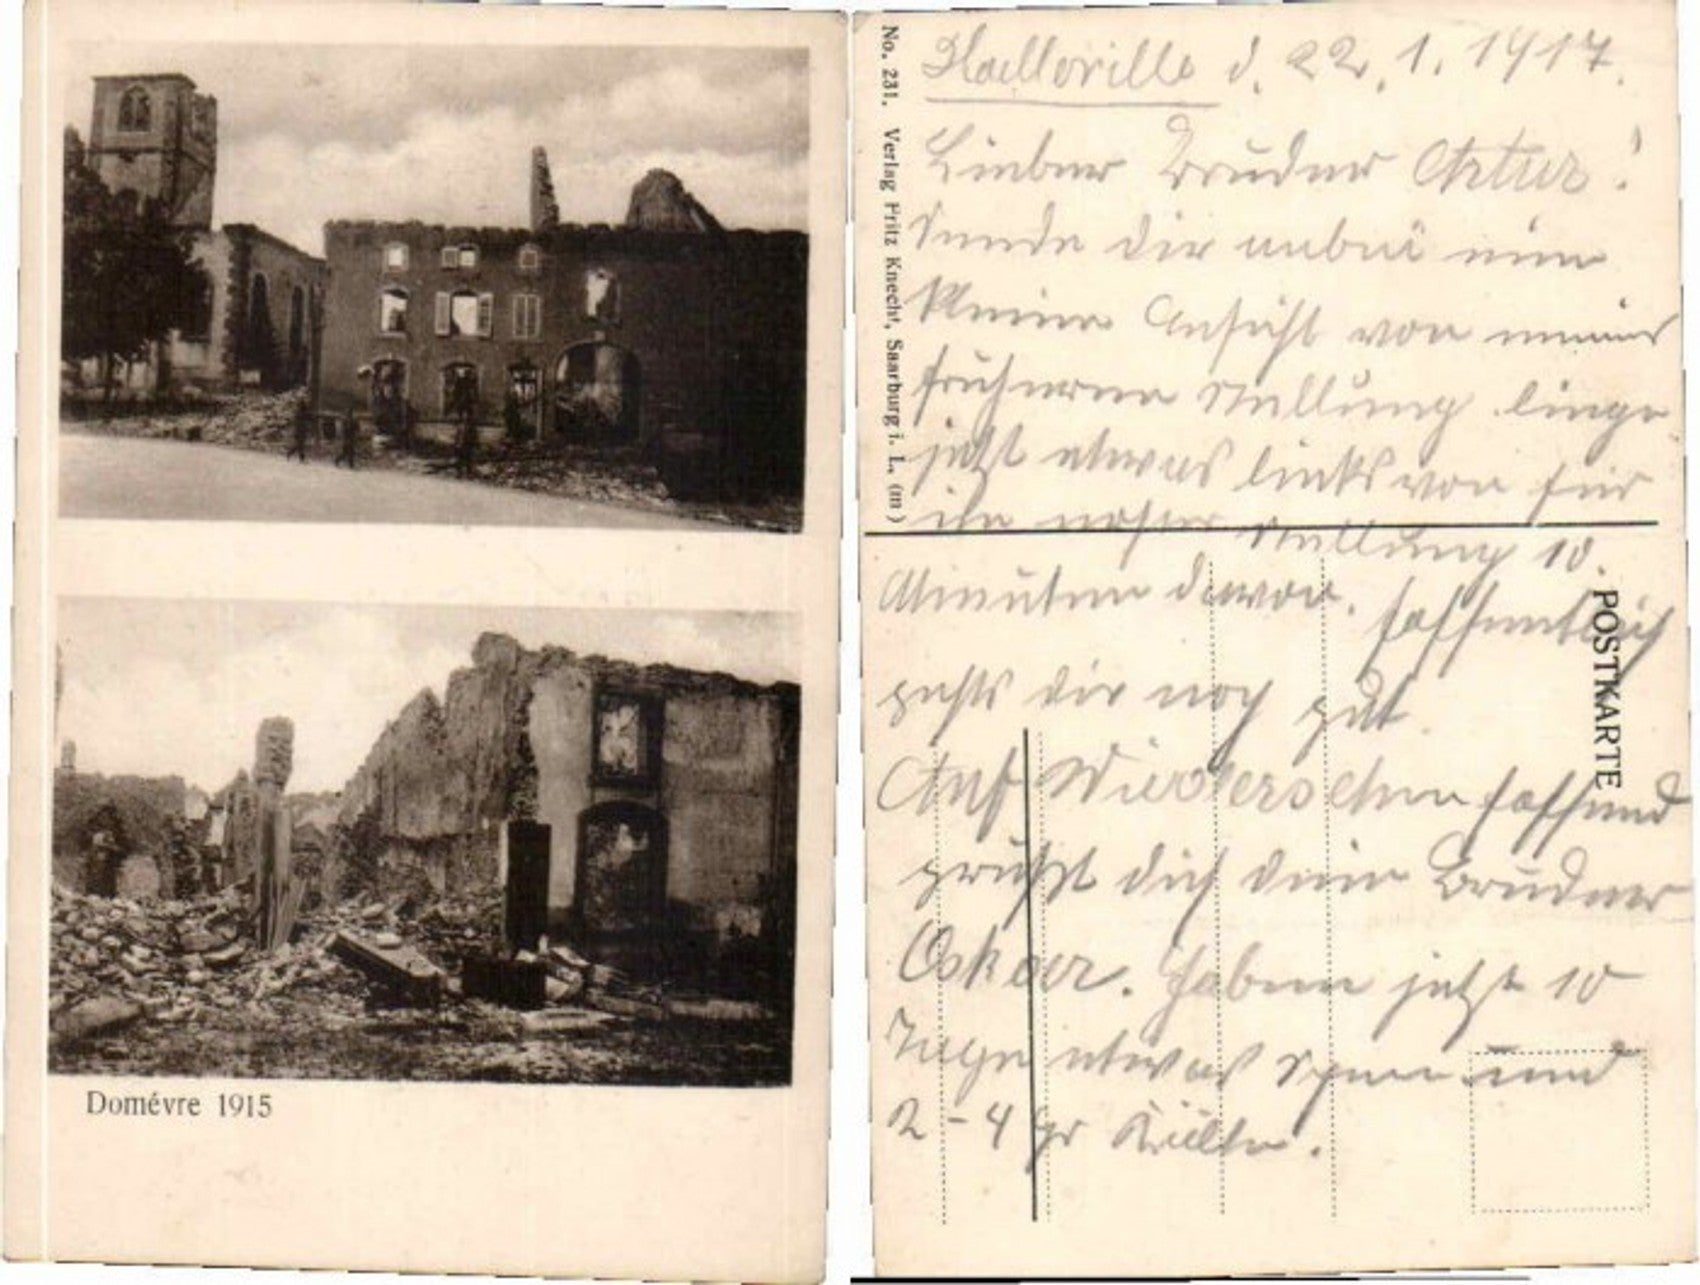 Domévre 1915
No. 231. Verlag Fritz Knecht, Saarburg i. L. (m)
POSTKARTE
Halloville d. 22. 1. 1917.
Lieber Bruder Artur!
Sende dir anbei eine
kleine Ansicht von meiner
früheren Stellung liege
jetzt etwas links von hier
Stellung 10
Minuten davon. hoffentlich
gehts dir noch gut.
Auf Wiedersehen hoffend
grüßt dich dein Bruder
Oskar. Haben jetzt 10
Tage etwas Schnee und
2-4 gr Kälte.